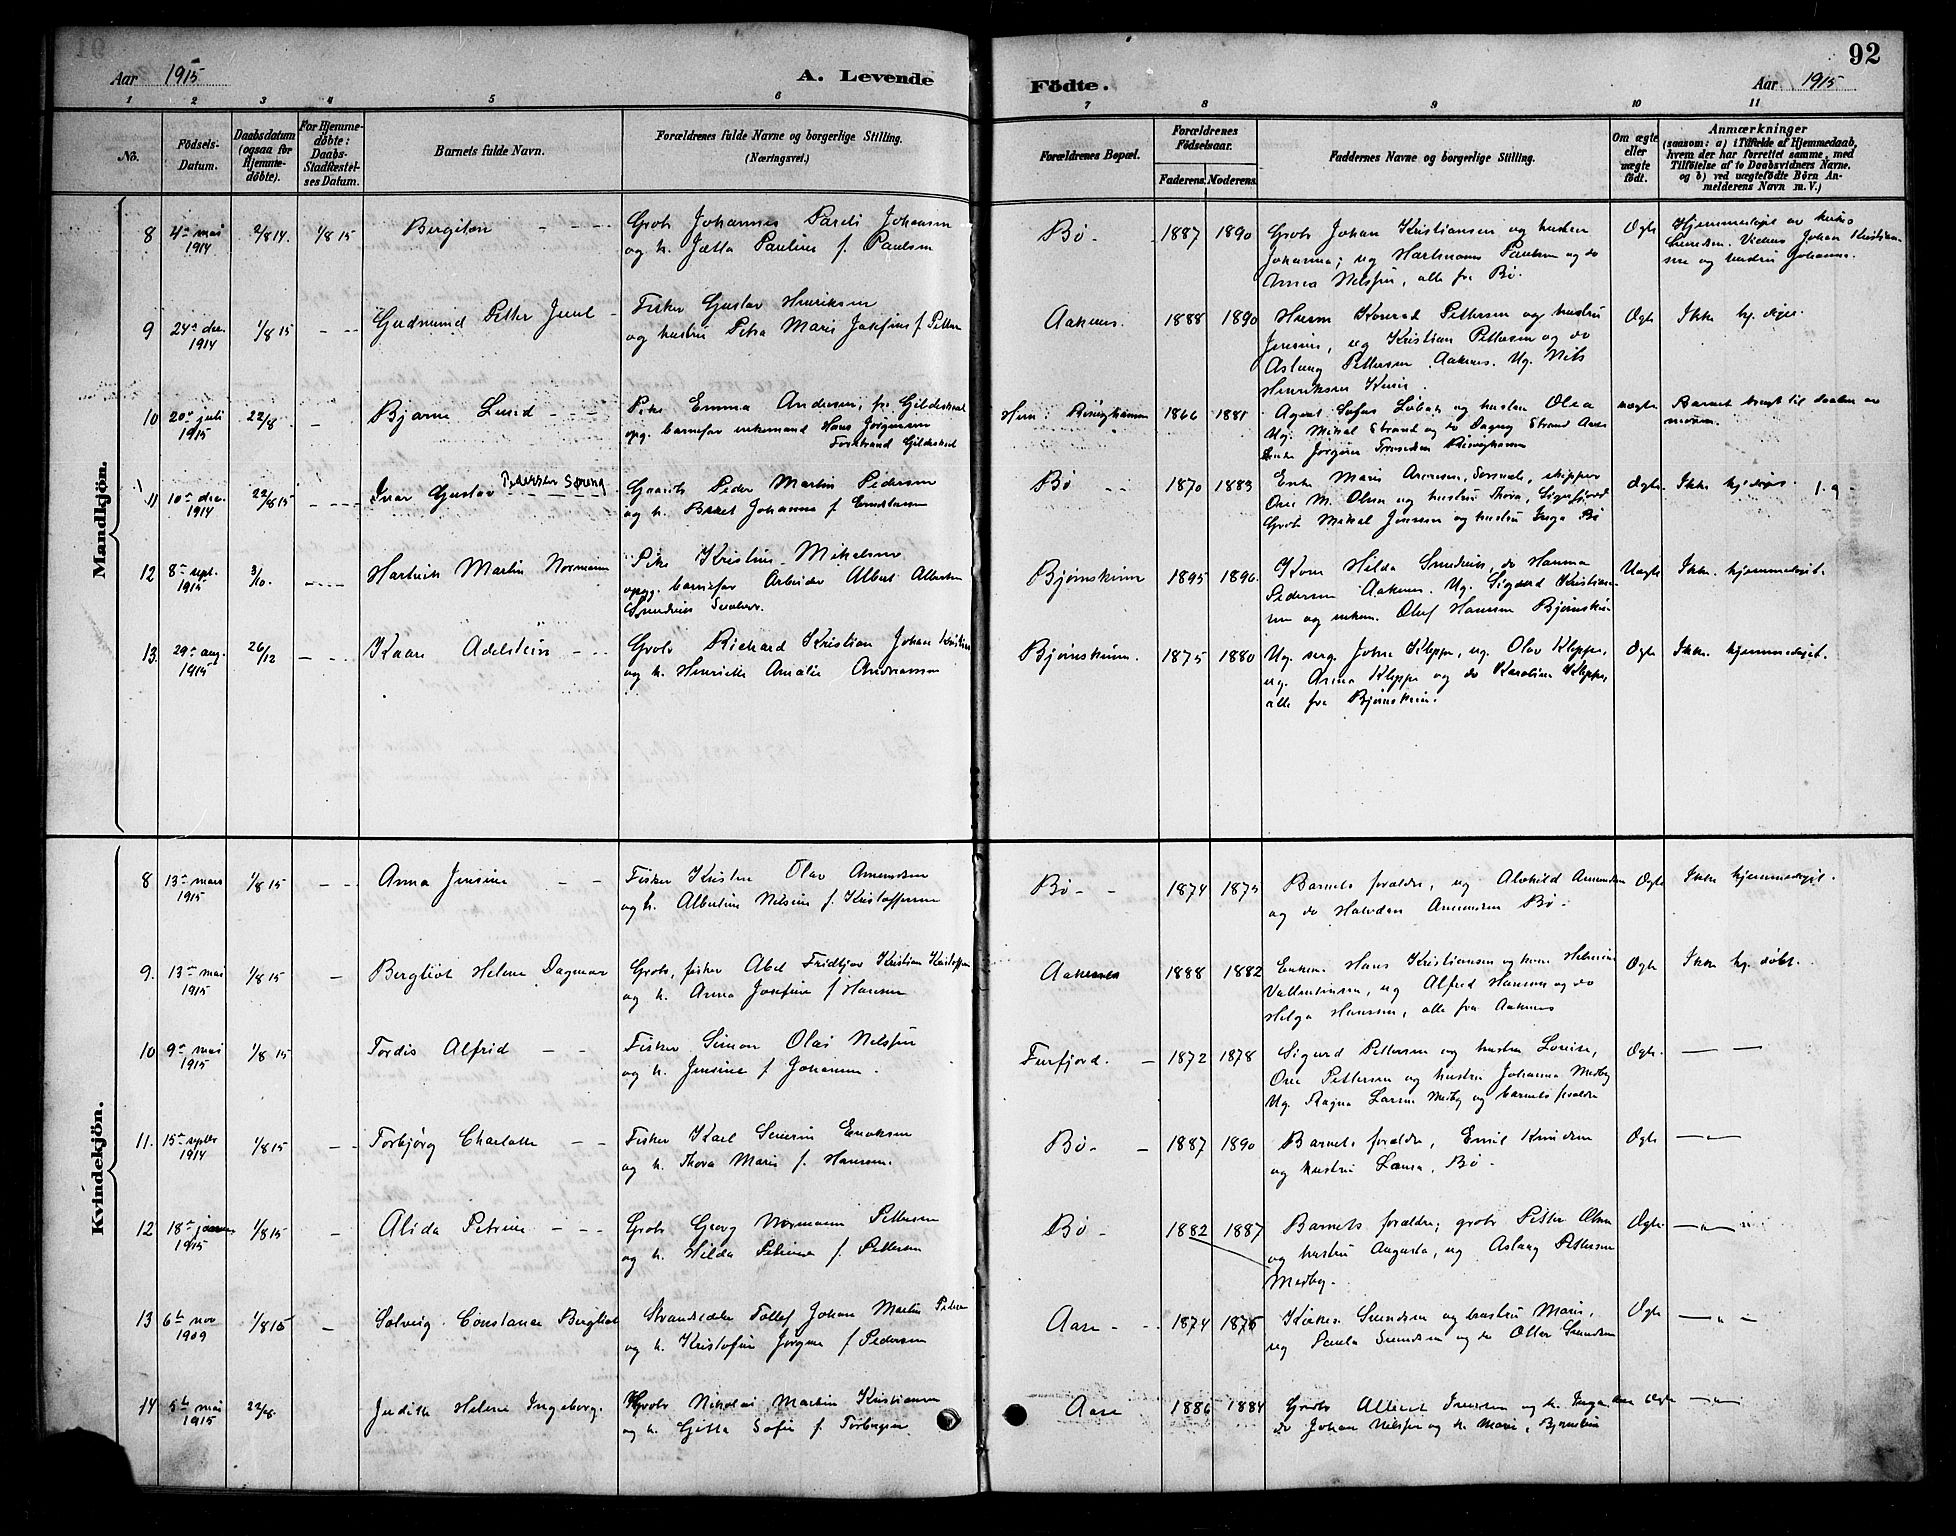 Aar 1915
A. Levende
Födte.
Aar 1915
92
1 2 3 4 5 6 7 8 9 10 11
No.
Födsels-
Datum.
Daabsdatum
(ogsaa for
Hjemme-
döbte).
For Hjemme-
döbte:
Daabs-
Stadfæstel-
ses Datum.
Barnets fulde Navn.
Forældrenes fulde Navne og borgerlige Stilling.
(Næringsvei.)
Forældrenes Bopæl.
Forældrenes
Födselsaar.
Faderens. Moderens.
Faddernes Navne og borgerlige Stilling.
Om ægte
eller
uægte
födt.
Anmærkninger
(saasom: a) i Tilfælde af Hjemmedaab,
hvem der har forrettet samme, med
Tilföielse af to Daabsvidners Navne.
og b) ved uægtefödte Börn An-
melderens Navn m. V.)
Mandkjön.
8 4de mai 1914 2/8 14. 1/8 15
Grbr Johannes Johansen
og h. Jetta Pauline f. Paulsen
Bø - 1887 1890
Grbr Johan Kristiansen og hustru
Johanna; ug Hartmann Paulsen og do
Anna Nilsen, alle fra Bø.
Ægte
Hjemmedøpt av
Vidner Johan Kristian-
sen og hustru Johanna.
9 24de des. 1914 1/8 15
Gudmund Petter Juul
Fisker Gustav Henriksen
og hustru Petra Marie Josefine f. Petter
Aaknes. 1888 1890
Konrad Pettersen og hustru
Jensine, ug Kristian Pettersen og do
Aslaug Pettersen Aaknes. Ug. Nils
Henriksen
Ægte Ikke hj. døpt.
10 20de juli 1915 22/8
Bjarne Lund
Pike Emma Andersen, fra Gildeskaal
opg. barnefar enkemand Hans Jørgensen
Forstrand Gildeskaal
1866 1881
Agent Sofus og hustru Olea
Ug. Mikal Strand og do Dagny Strand
Jørgine Risøyhamn
uægte
Barnet bragt til daaben av
moren.
11 10de des. 1914 22/8 15
Ivar Gustav Pedersen Spreng
Peder Martin Pedersen
og h. Beret Johanna f. Enoksen
Bø 1870 1883
Enke Marie skipper
Ole M. Olsen og hustru Thora,
Grbr Mikal Jensen og hustru Inga Bø
Ægte. Ikke hj.døpt.
12 8de sept. 1915 3/10.
Hartvik Martin Normann
Pike Kristine Mikalsen
opg. barnefar Arbeider Albert Albertsen
Bjørnskinn 1895 1896.
Kone Hilda do Hanna
Pedersen Aaknes. Ug. Sigurd Kristian-
sen og enkem. Oluf Hansen Bjørnskinn
Uægte Ikke hjemmedøpt.
13. 29de aug. 1915 26/12
Kaare Adelstein
Grbr Richard Kristian Johan
og h. Henriette Amalie Andreassen
Bjørnskinn. 1875 1880
Ug. serg. John Kleppe, ug. Olav Kleppe,
ug. Anna Kleppe og do Karoline Kleppe,
alle fra Bjørnskinn.
Ægte Ikke hjemmedøpt.
Kvindekjön.
8 13de mars 1915 1/8 15
Anna Jensine
Fisker Kristen Olav Amundsen
og h. Albertine Nilsine f. Kristoffersen
Bø - - 1874 1875
Barnets forældre, ug Alvhild Amundsen
og do Halvdan Amundsen Bø.
Ægte Ikke hjemmedøpt.
9. 13de mai 1915 1/8 15
Bergliot Helene Dagmar
Grbr, fisker Abel Fridtjov Kristian Kristoffersen
og h. Anna Josefine f Hansen
Aaknes 1888 1882
Enkem. Hans Kristiansen og kone
ug Alfred Hansen og do
Helga Hansen, alle fra Aaknes
Ægte Ikke hj. døbt.
10 9de mai 1915 1/8 15
Tordis Alfrid
Fisker Simon Olai Nilssen
og h. Jensine f Johansen.
Furfjord. 1872 1878
Sigurd Pettersen og hustru Lovise,
Ole Pettersen og hustru Johanna Medby
Ug. Ragna Larsen Medby og barnets forældre
Ægte.
11. 15de septbr 1914 1/8 15
Torbjörg Charlotte
Fisker Karl Severin Enoksen
og h. Thora Marie f. Hansen.
Bø. 1887 1890
Barnets forældre, Emil Knudsen
og hustru Laura, Bø.
Ægte
12 18de januar 1915 1/8 15
Alida Petrine
Grbr Georg Normann Pettersen
og h. Hilda Petrine f. Pettersen
Bø - 1882 1887
Barnets forældre; grbr Petter Olsen
og hustru Augusta, ug Aslaug Pettersen
Medby.
Ægte
13 6te nov 1909 1/8 15
Solveig Constanse Bergliot
Strandsidder Tollef Johan Martin
og h. Kristofine Jørgine f Pedersen
Aase - - 1874 1875
og hustru Marie,
ug Paula og do
Ægte
14 5te mai 1915 22/8.
Judith Helene Ingeborg.
Grbr Nikolai Martin Kristiansen
og h. Gitta Sofie f. Torbergsen
Aase 1886 1884
Grbr Albert Iversen og h. Inga
do Johan Nilssen og h. Marie,
Ægte